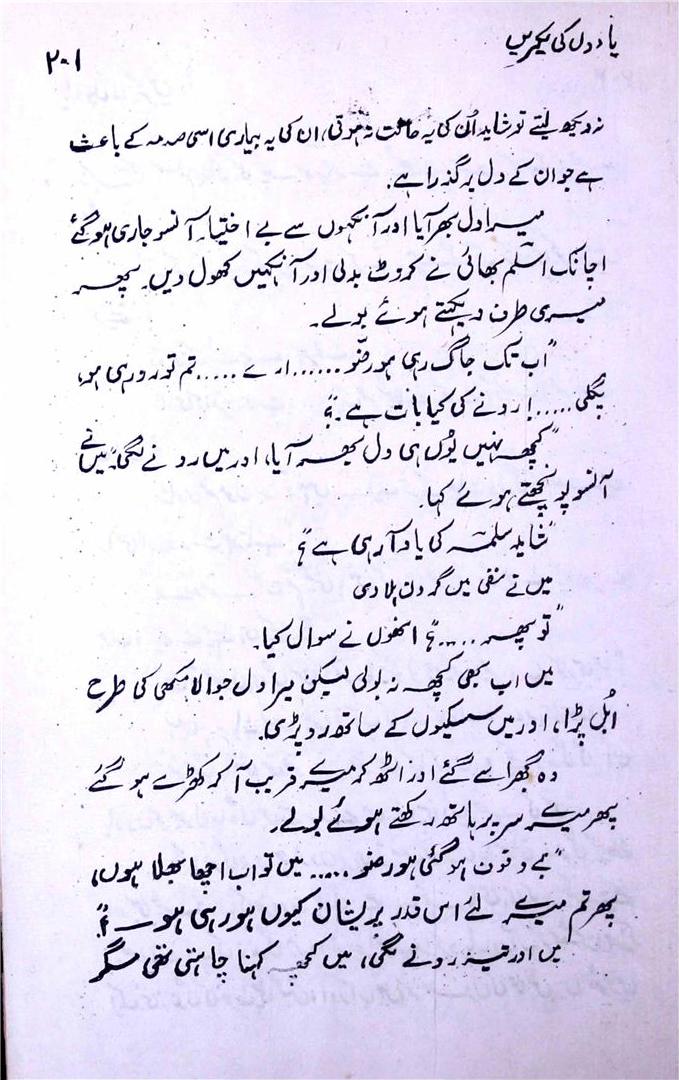 یادوں کی لکیریں
۲۰۱
نہ دیکھ لیتے تو شاید اُن کی یہ حالت نہ ہوتی، ان کی یہ بیماری اسی صدمہ کے باعث
ہے جو ان کے دل پر گذرا ہے۔
میرا دل بھر آیا اور آنکھوں سے بے اختیار آنسو جاری ہو گئے
اچانک اسلم بھائی نے کروٹ بدلی اور آنکھیں کھول دیں۔ پھر
میری طرف دیکھتے ہوئے بولے۔
"اب تک جاگ رہی ہو رضّو ...... ارے ..... تم تو رو رہی ہو،
پگلی .....! رونے کی کیا بات ہے۔؟"
"کچھ نہیں یوُں ہی دل بھر آیا، اور میں رونے لگی۔" میں نے
آنسو پونچھتے ہوئے کہا۔
"شاید سلمہ کی یاد آ رہی ہے؟"
میں نے نفی میں گردن ہلا دی
"تو پھر ....؟" انھوں نے سوال کیا۔
میں اب بھی کچھ نہ بولی لیکن میرا دل جوالا مکھی کی طرح
اُبل پڑا، اور میں سسکیوں کے ساتھ رو پڑی۔
وہ گھبرا سے گئے اور اٹھ کر میرے قریب آ کر کھڑے ہو گئے
پھر میرے سر پر ہاتھ رکھتے ہوئے بولے۔
"بے وقوف ہو گئی ہو رضو ..... میں تو اب اچھا بھلا ہوں،
پھر تم میرے لئے اس قدر پریشان کیوں ہو رہی ہو۔؟"
میں اور تیز رونے لگی، میں کچھ کہنا چاہتی تھی مگر